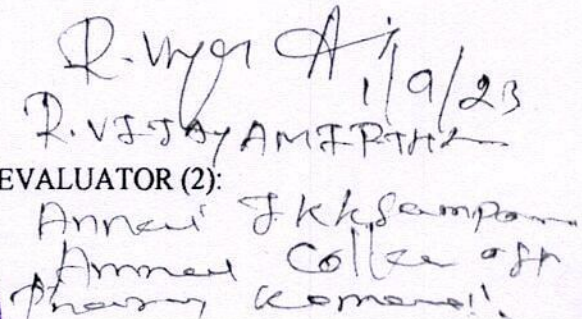 R. Vijay A
1/9/23
R. VIJAYAMIRTH
EVALUATOR (2):
Annai JKK Sampoorani
Ammal College of
Pharmacy